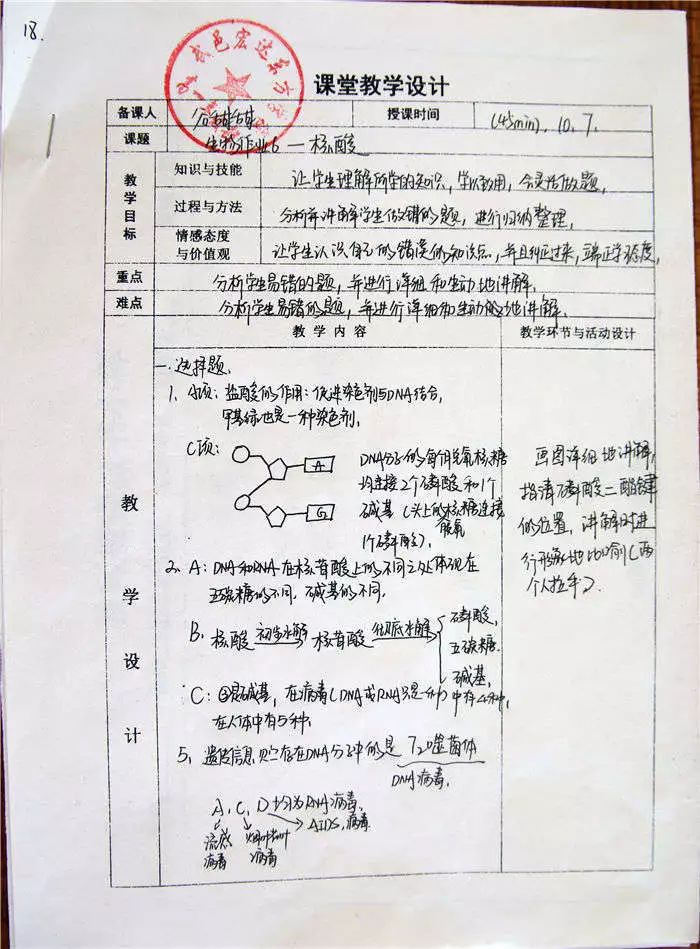 18.
武邑宏达
课堂教学设计
备课人
授课时间 (45min). 10. 7.
课题 生物作业6 — 核酸
教学目标
知识与技能 让学生理解所学的知识, 学以致用, 会灵活做题.
过程与方法 分析并讲解学生做错的题, 进行归纳整理.
情感态度与价值观 让学生认识自己的错误的知识点, 并且纠正过来, 端正学习态度.
重点 分析学生易错的题, 并进行详细和生动地讲解.
难点 分析学生易错的题, 并进行详细和生动的地讲解.
教学内容
教学环节与活动设计
教学设计
一. 选择题.
1. A项: 盐酸的作用: 促进染色剂与DNA结合,
甲基绿也是一种染色剂.
C项:
A
G
DNA分子的每个脱氧核糖
均连接2个磷酸和1个
碱基 (头上的核糖连接
脱氧
1个磷酸).
2. A: DNA和RNA在核苷酸上的不同之处体现在
五碳糖的不同, 碱基的不同.
B. 核酸 初步水解 核苷酸 彻底水解 磷酸.
五碳糖.
碱基.
C: ④是碱基, 在病毒 (DNA或RNA只是一种) 中有4种,
在人体中有5种.
5. 遗传信息贮存在DNA分子中的是 T₂噬菌体
DNA病毒.
A. C. D 均为RNA病毒.
流感病毒
烟草花叶病毒
AIDS病毒
画图详细地讲解,
指清磷酸二酯键
的位置, 讲解时进
行形象地比喻 (两
个人拉手)